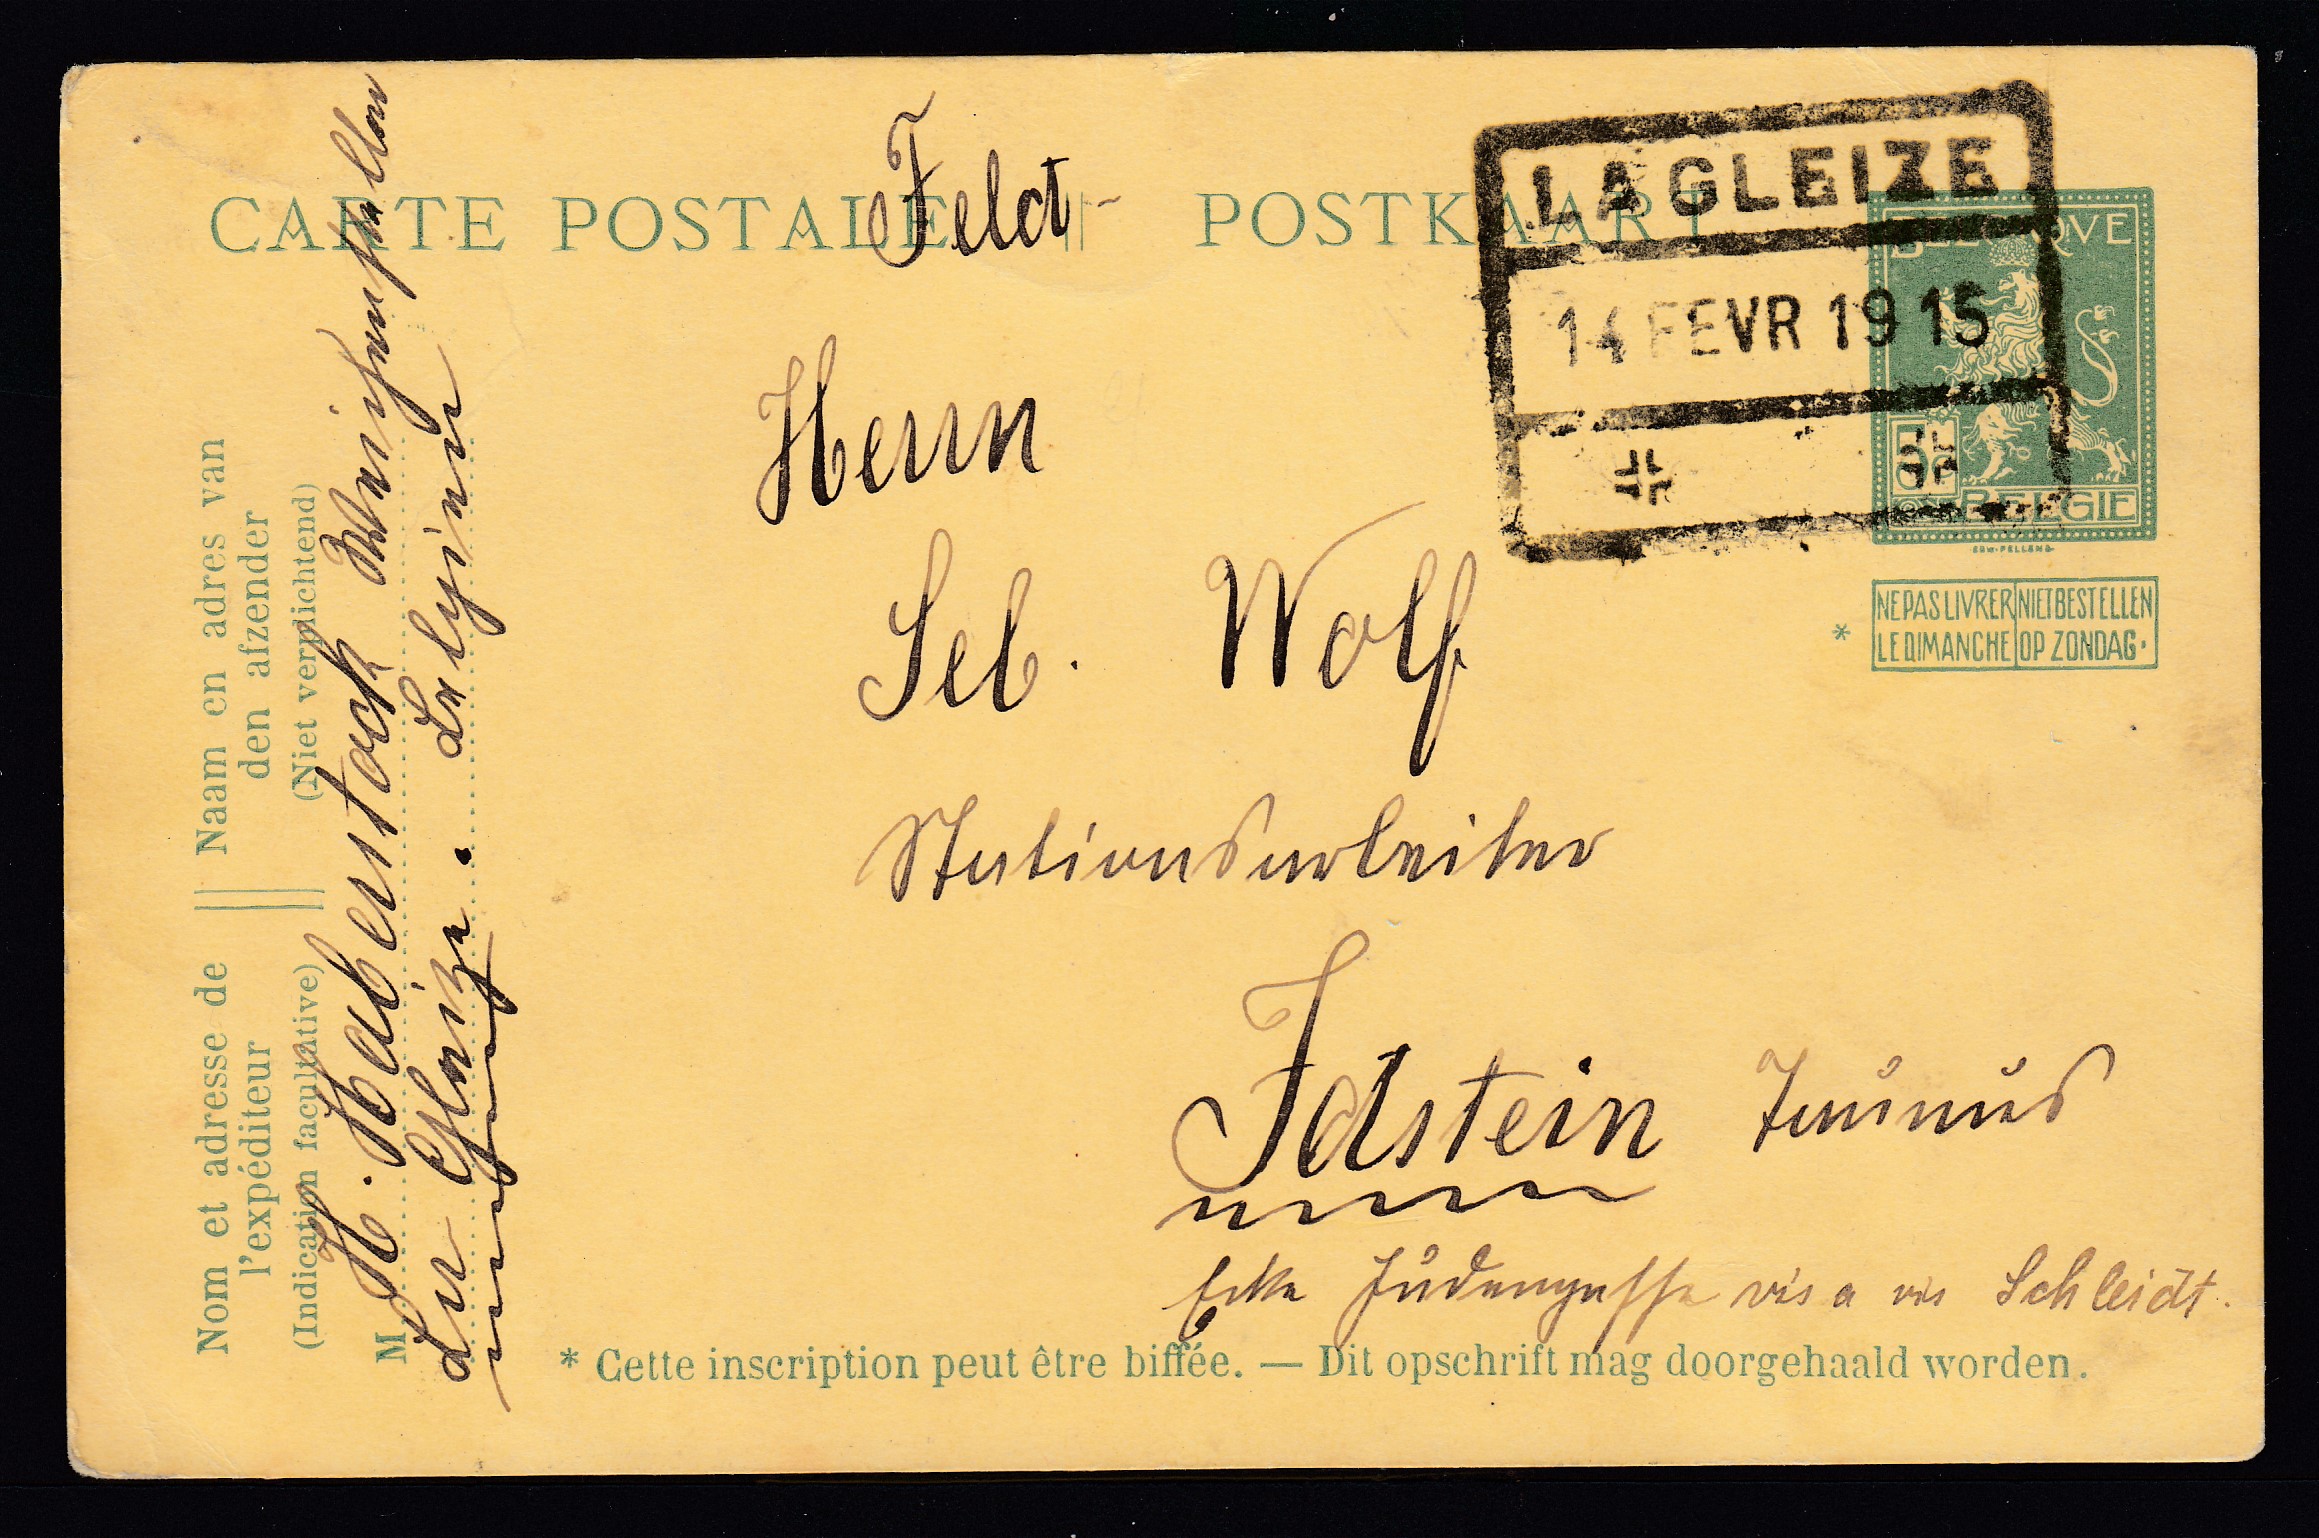 CARTE POSTALE || POSTKAART
Feld-
LA GLEIZE
14 FEVR 1915
BELGIQVE
5c
BELGIE
NE PAS LIVRER LE DIMANCHE
NIET BESTELLEN OP ZONDAG.
*
Herrn
Seb. Wolf
Stationsarbeiter
Idstein Taunus
Ecke Judengasse vis a vis Schleidt.
* Cette inscription peut être biffée. — Dit opschrift mag doorgehaald worden.
Nom et adresse de l'expéditeur
(Indication facultative)
Naam en adres van den afzender
(Niet verplichtend)
M. H. Haberstock Weichensteller
La Gleize. Belgien